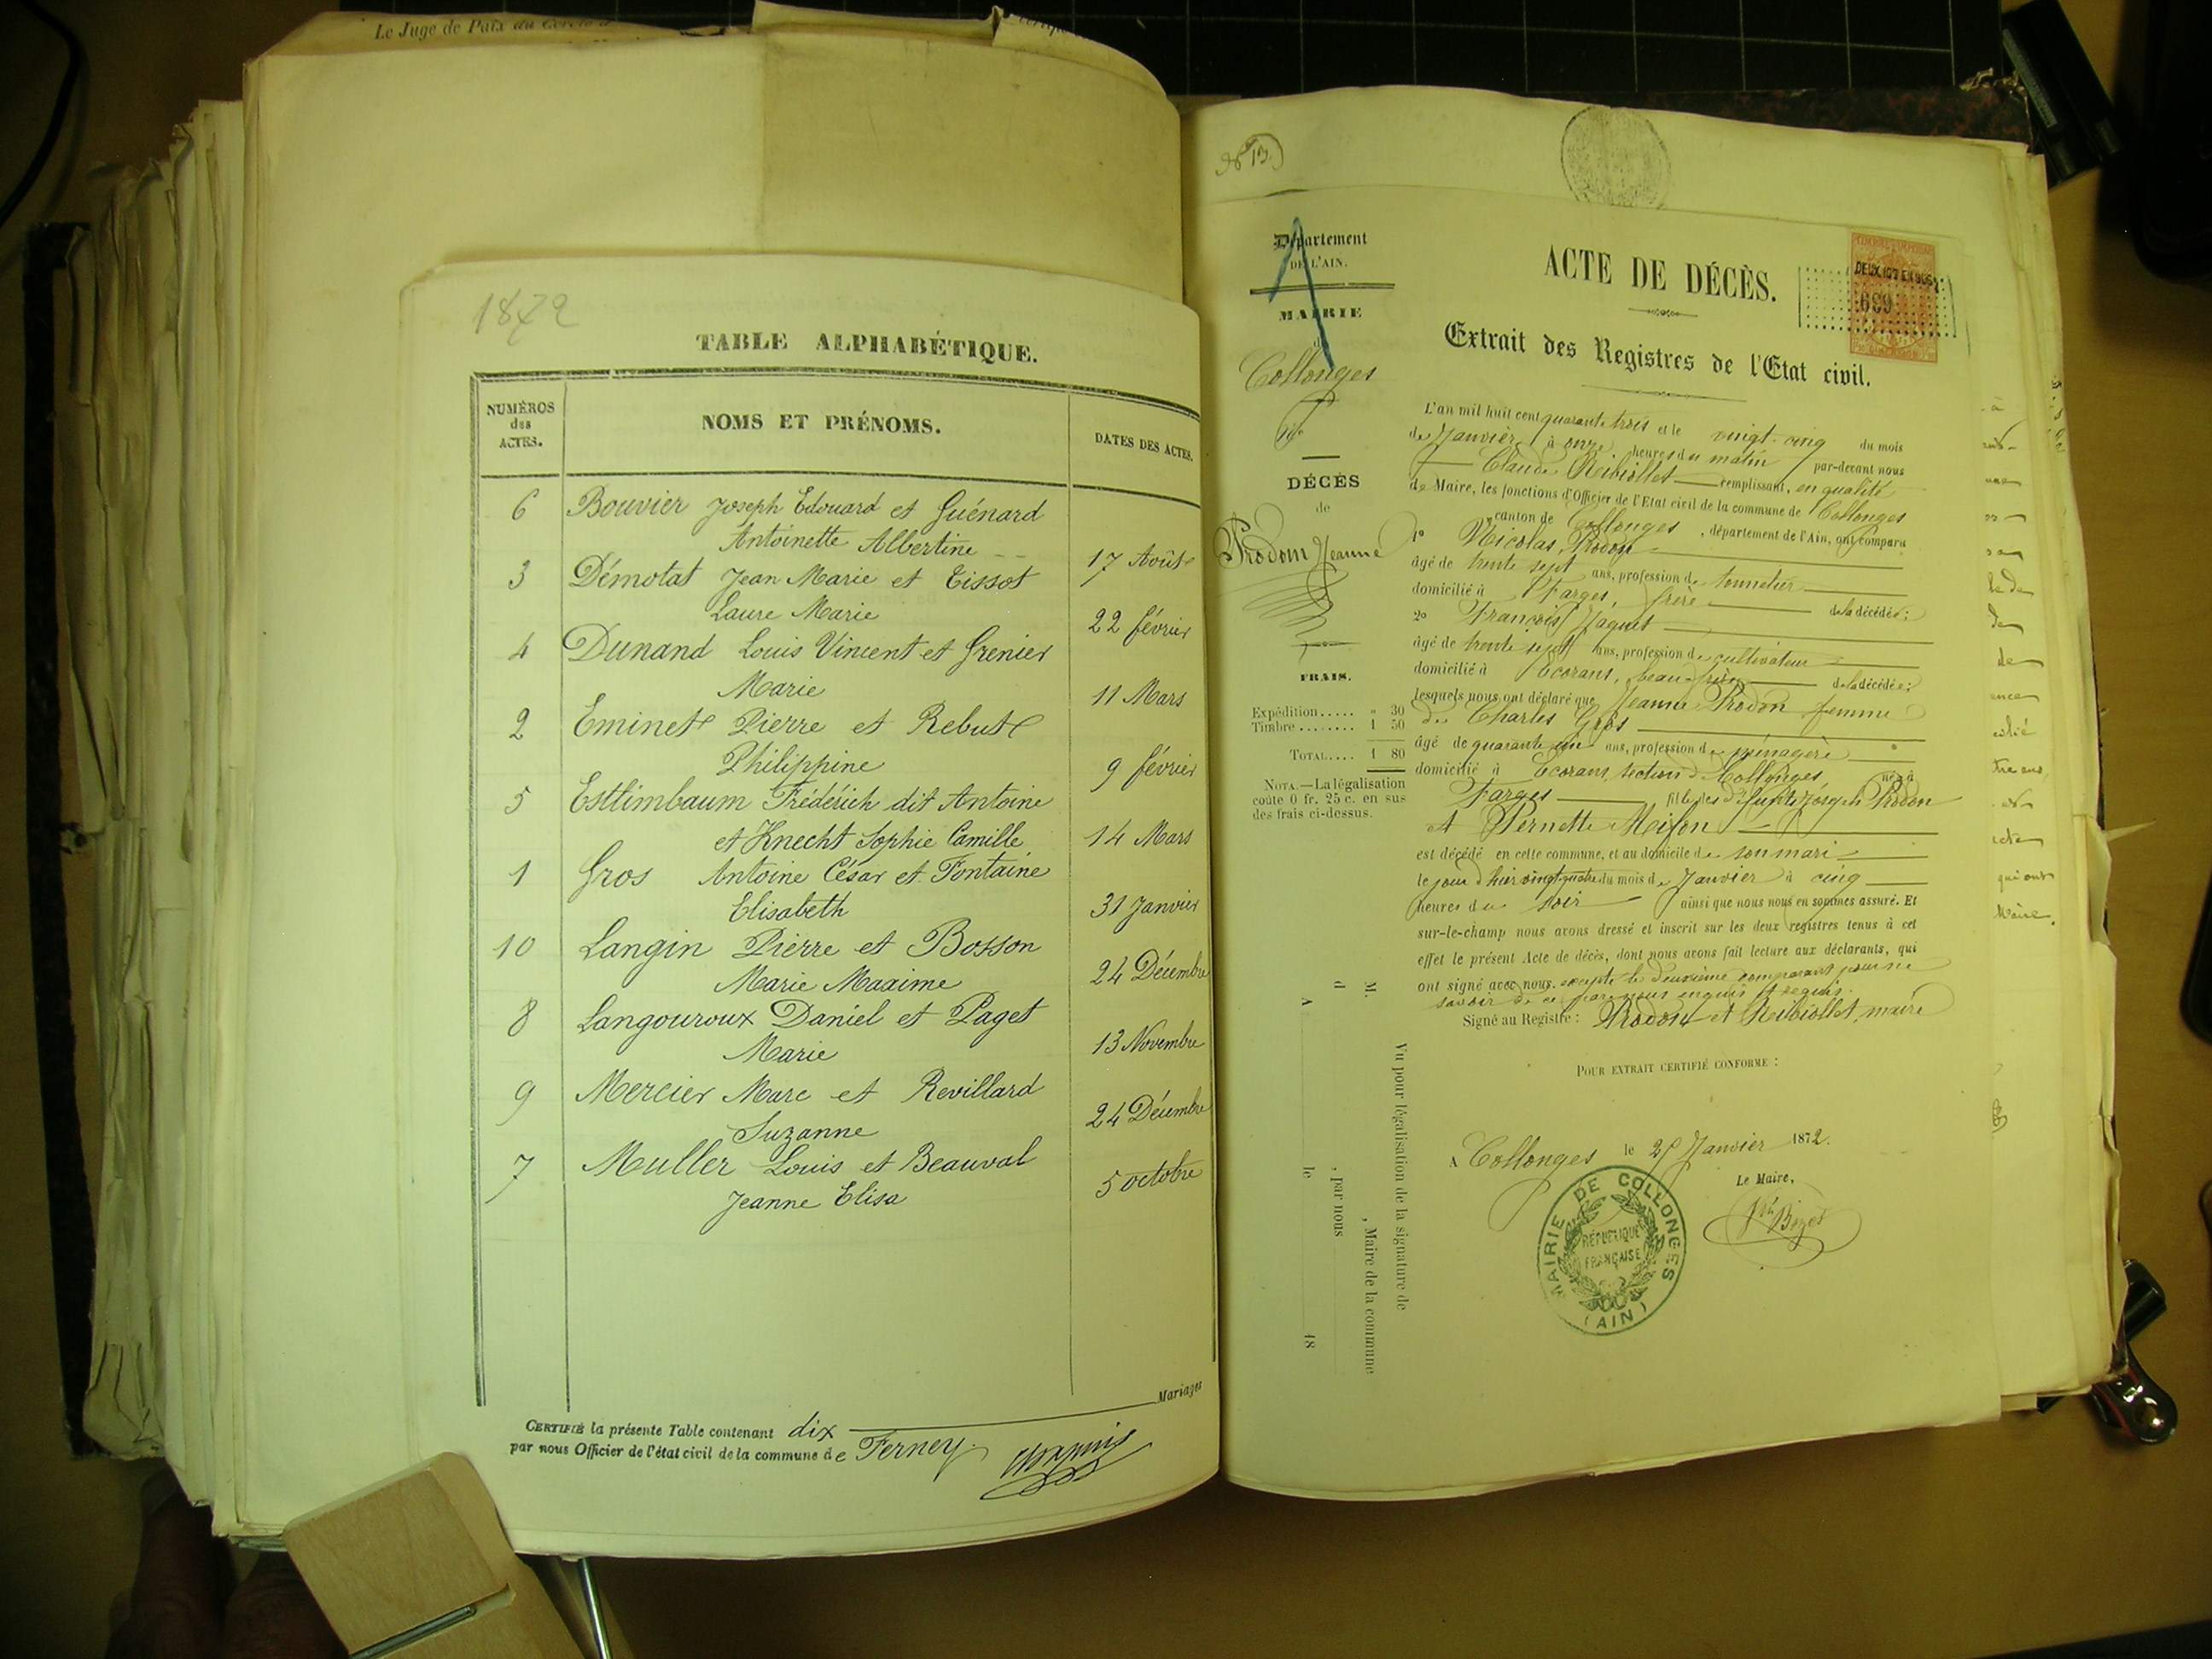 Le Juge de Paix du Cercle
1872
TABLE ALPHABÉTIQUE.
NUMÉROS
des
ACTES.
NOMS ET PRÉNOMS.
DATES DES ACTES.
6 Bouvier Joseph Edouard et Guénard
Antoinette Albertine 17 Août
3 Démotat Jean Marie et Tissot
Laure Marie 22 février
4 Dunand Louis Vincent et Grenier
Marie 11 Mars
2 Eminet Pierre et Rebut
Philippine 9 février
5 Estlimbaum Frédérich dit Antoine
et Knecht Sophie Camille 14 Mars
1 Gros Antoine César et Fontaine
Elisabeth 31 Janvier
10 Langin Pierre et Bosson
Marie Maxime 24 Décembre
8 Langouroux Daniel et Paget
Marie 13 Novembre
9 Mercier Marc et Revillard
Suzanne 24 Décembre
7 Muller Louis et Beauval
Jeanne Elisa 5 octobre
CERTIFIÉ la présente Table contenant dix Mariages
par nous Officier de l'état civil de la commune de Ferney.
Département
DE L'AIN.
MAIRIE
Collonges
DÉCÈS
de
Prodon Jeanne
FRAIS.
Expédition..... » 30
Timbre........ 1 50
TOTAL.... 1 80
NOTA.—La légalisation
coûte 0 fr. 25 c. en sus
des frais ci-dessus.
ACTE DE DÉCÈS.
Extrait des Registres de l'Etat civil.
669
L'an mil huit cent quarante trois et le vingt-cinq du mois
de Janvier à onze heures du matin par-devant nous
Claude Reibiollet remplissant, en qualité
de Maire, les fonctions d'Officier de l'Etat civil de la commune de Collonges
canton de Collonges, département de l'Ain, ont comparu
1º Nicolas Prodon
âgé de trente sept ans, profession de tonnelier
domicilié à Farges, frère de la décédée;
2º François Jaquet
âgé de trente sept ans, profession de cultivateur
domicilié à Ecorans, beau-frère de la décédée;
lesquels nous ont déclaré que Jeanne Prodon femme
de Charles Gros
âgé de quarante un ans, profession de ménagère
domicilié à Ecorans, section de Collonges, né à
Farges fille des défunts Joseph Prodon
et Pernette
est décédé en cette commune, et au domicile de son mari
le jour d'hier vingt-quatre du mois de Janvier à cinq
heures du soir ainsi que nous nous en sommes assuré. Et
sur-le-champ nous avons dressé et inscrit sur les deux registres tenus à cet
effet le présent Acte de décès, dont nous avons fait lecture aux déclarants, qui
ont signé avec nous. excepté le deuxième comparant pour ne
savoir de ce par nous enquis et requis.
Signé au Registre : Prodon et Reibiollet, maire
POUR EXTRAIT CERTIFIÉ CONFORME :
A Collonges le 25 Janvier 1872.
Le Maire,
MAIRIE DE COLLONGES
RÉPUBLIQUE
FRANÇAISE
(AIN)
Vu pour légalisation de la signature de
M. , Maire de la commune
d , par nous
A le 18